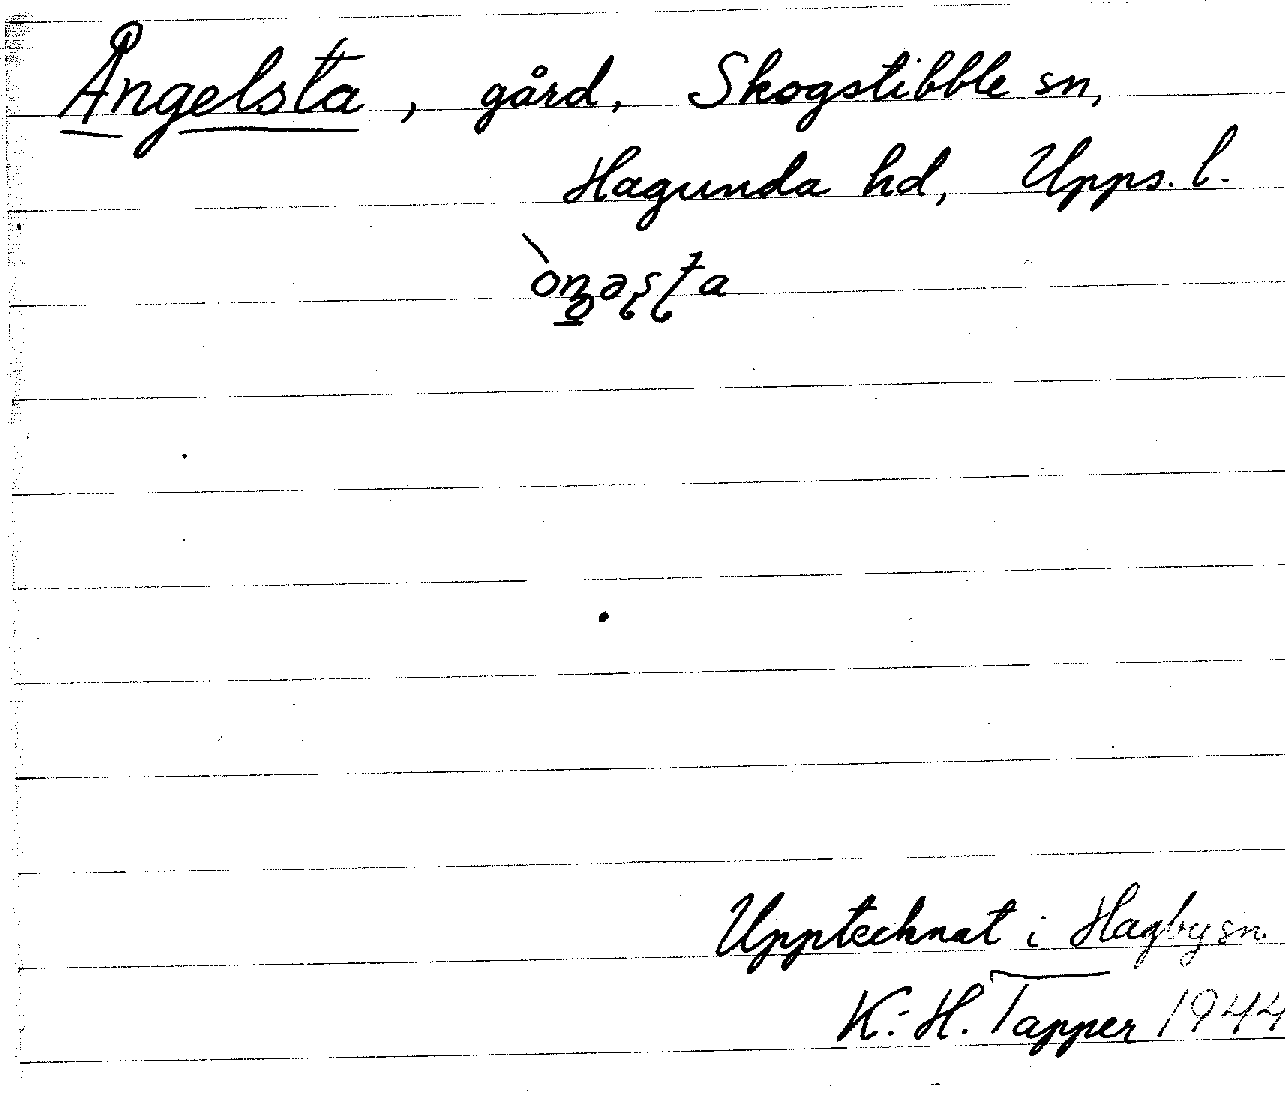 Ångelsta, gård, Skogstibble sn,
Hagunda hd, Upps. l.
Upptecknat i Hagby sn.
K.-H. Tapper 1944